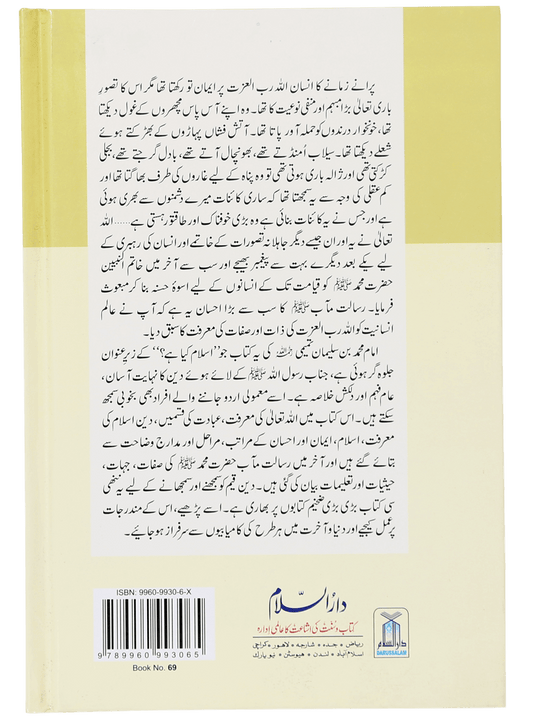 پرانے زمانے کا انسان اللہ رب العزت پر ایمان تو رکھتا تھا مگر اس کا تصورِ
باری تعالیٰ بڑا مبہم اور منفی نوعیت کا تھا۔ وہ اپنے آس پاس مچھروں کے غول دیکھتا
تھا، خونخوار درندوں کو حملہ آور پاتا تھا۔ آتش فشاں پہاڑوں کے بھڑکتے ہوئے
شعلے دیکھتا تھا۔ سیلاب اُمنڈتے تھے، بھونچال آتے تھے، بادل گرجتے تھے، بجلی
کڑکتی تھی اور ژالہ باری ہوتی تھی تو وہ پناہ کے لیے غاروں کی طرف بھاگتا تھا اور
کم عقلی کی وجہ سے یہ سمجھتا تھا کہ ساری کائنات میرے دشمنوں سے بھری ہوئی
ہے اور جس نے یہ کائنات بنائی ہے وہ بڑی خوفناک اور طاقتور ہستی ہے...... اللہ
تعالیٰ نے یہ اور ان جیسے دیگر جاہلانہ تصورات کے خاتمے اور انسان کی رہبری کے
لیے یکے بعد دیگرے بہت سے پیغمبر بھیجے اور سب سے آخر میں خاتم النبیین
حضرت محمد ﷺ کو قیامت تک کے انسانوں کے لیے اسوۂ حسنہ بنا کر مبعوث
فرمایا۔ رسالت مآب ﷺ کا سب سے بڑا احسان یہ ہے کہ آپ نے عالم
انسانیت کو اللہ رب العزت کی ذات اور صفات کی معرفت کا سبق دیا۔
امام محمد بن سلیمان تمیمی رحمہ اللہ کی یہ کتاب جو ”اسلام کیا ہے؟“ کے زیر عنوان
جلوہ گر ہوئی ہے، جناب رسول اللہ ﷺ کے لائے ہوئے دین کا نہایت آسان،
عام فہم اور دلکش خلاصہ ہے۔ اسے معمولی اردو جاننے والے افراد بھی بخوبی سمجھ
سکتے ہیں۔ اس کتاب میں اللہ تعالیٰ کی معرفت، عبادت کی قسمیں، دین اسلام کی
معرفت، اسلام، ایمان اور احسان کے مراتب، مراحل اور مدارج وضاحت سے
بتائے گئے ہیں اور آخر میں رسالت مآب حضرت محمد ﷺ کی صفات، جہات،
حیثیات اور تعلیمات بیان کی گئی ہیں۔ دین قیم کو سمجھنے اور سمجھانے کے لیے یہ ننھی
سی کتاب بڑی بڑی ضخیم کتابوں پر بھاری ہے۔ اسے پڑھیے، اس کے مندرجات
پر عمل کیجیے اور دنیا و آخرت میں ہر طرح کی کامیابیوں سے سرفراز ہو جائیے۔
ISBN: 9960-9930-6-X
9 789960 993065
Book No. 69
دارُالسّلام
کتاب و سنّت کی اشاعت کا عالمی ادارہ
ریاض • جدہ • شارجہ • لاہور • کراچی
اسلام آباد • لندن • ہیوسٹن • نیو یارک
دارالسلام
DARUSSALAM